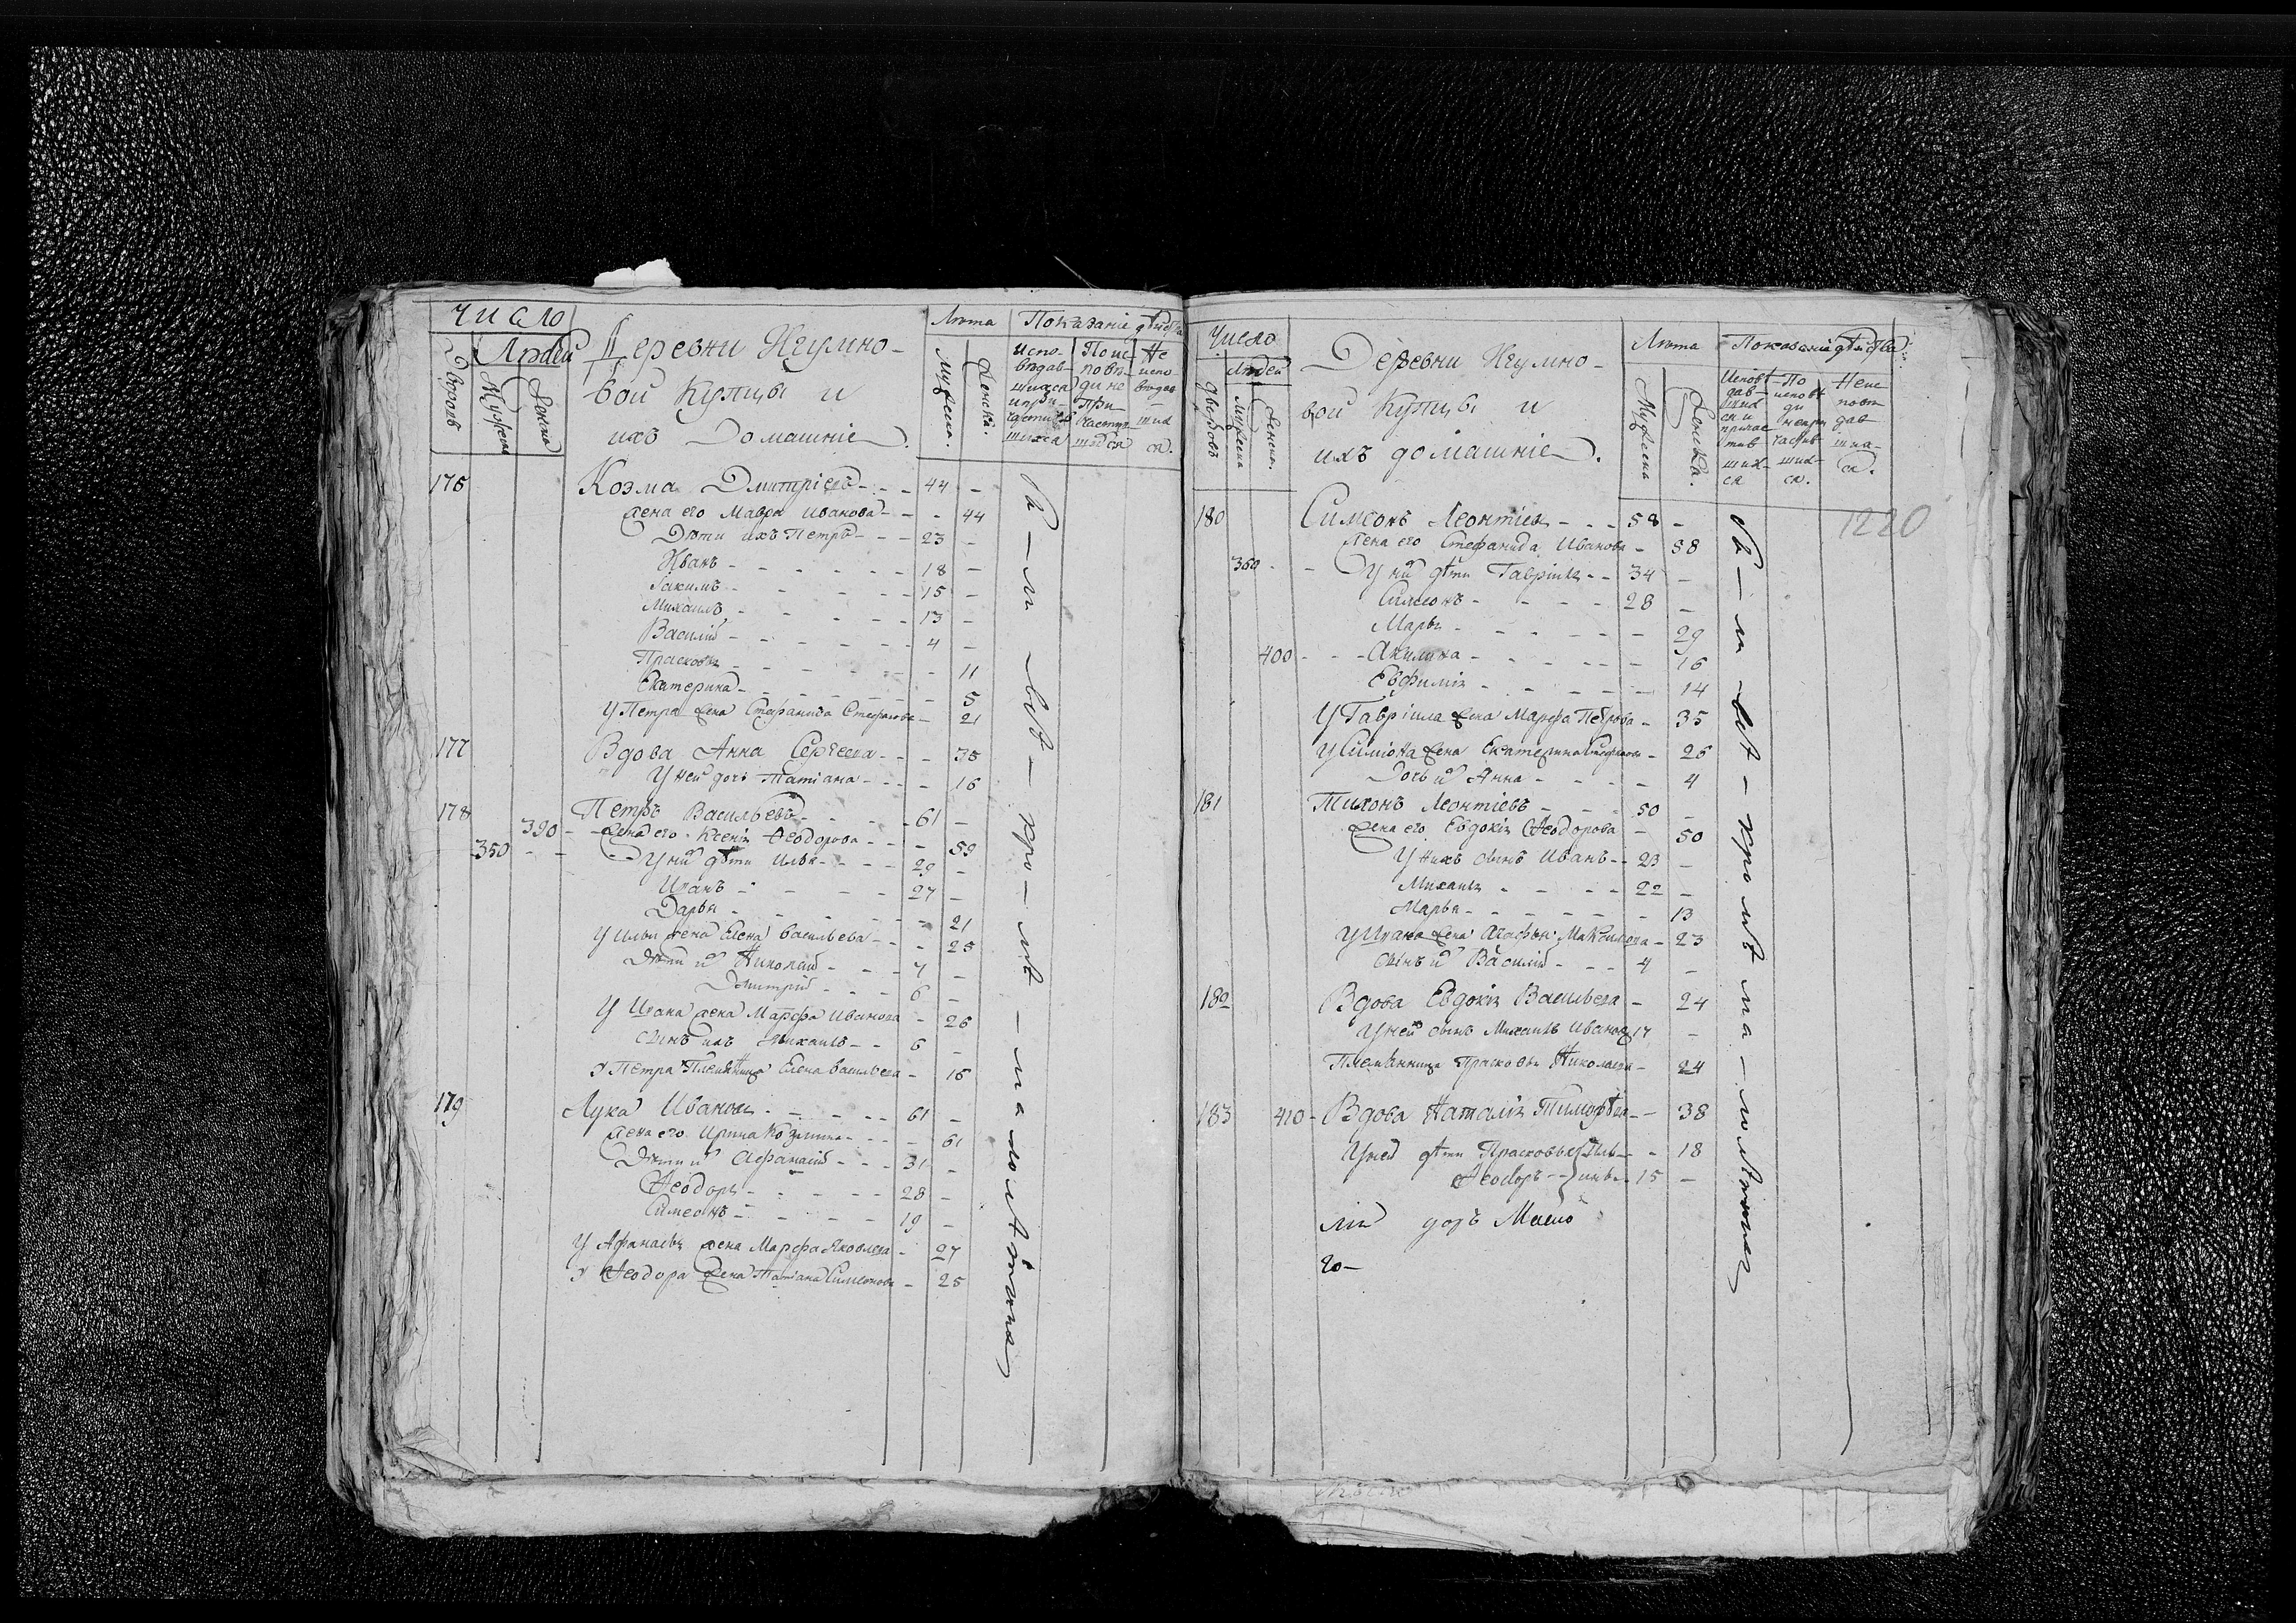 Число
Людей
Дворовъ
Мужеска
Женска
Деревни Игумно-
вой Купцы и
ихъ Домашнiе.
Лѣта
Мужеска.
Женска.
Показанiе дѣйства
Испо-
вѣдав-
шихся
и при-
частив
шихся
По ис
повѣ-
ди не
при-
частив
шихся
Не
испо-
вѣдав
ших
ся.
176 Козма Дмитрiевъ - - - 44 -
жена его Мавра Иванова - - - 44
Дѣти ихъ Петръ - - - 23 -
Иванъ - - - - - - 18 -
Iакимъ - - - - - 15 -
Михаилъ - - - - - 13 -
Василiй - - - - - - 4 -
Прасковья - - - - - - - 11
Екатерина - - - - - - 5
У Петра жена Стефанида Стефанова - 21
177 Вдова Анна Сергеева - - - 35
У ней дочь Татiана - - - - 16
178 Петръ Васильевъ - - - - 61 -
390 - - жена его Ксенiя Ѳеодорова - - - 59
350 - - У ний дѣти Илья - - - - 29 -
Иванъ - - - - - 27 -
Дарья - - - - - - - 21
У Ильи жена Елена Васильева - - - 25
Дѣти ий Николай - - - 7 -
Дмитрiй - - - 6 -
У Ивана жена Марфа Иванова - 26
Сынъ ихъ Михаилъ - - 6 -
У Петра Племянница Елена Васильева - 16
179 Лука Иванов - - - - - 61 -
жена его Ирина Козмина - - - - 61
Дѣти ий Афанасiй - - - 31 -
Ѳеодоръ - - - - - 28 -
Симеонъ - - - - - 19 -
У Афанасья жена Марфа Яковлева - 27
У Ѳеодора жена Татiана Симеонова - 25
Число
Людей
Дворовъ
Мужеска
Женска.
Деревни Игумно-
вой Купцы и
ихъ домашнiе.
Лѣта
Мужеска
Женска.
Показанiе дѣйства
Исповѣ-
дав-
ших
ся и
причас
тив
ших-
ся
По
исповѣ
ди
непри
частив
ших-
ся.
Неис
повѣ
дав
ших-
ся.
1220
180 Симеонъ Леонтiев - - - 58 -
жена его Стефанида Иванова - 58
360 - - У ний дѣти Гаврiилъ - - 34 -
Симеонъ - - - - 28 -
Марья - - - - - - 29
400 - - - Акилина - - - - - - 16
Евфимiя - - - - - - 14
У Гаврiила жена Марфа Петрова - 35
У Симiона жена Екатерина - 26
Дочь ий Анна - - - - - 4
181 Тихонъ Леонтiевъ - - - 50 -
жена его Евдокiя Ѳеодорова - 50
У нихъ сынъ Иванъ - - 23 -
Михаилъ - - - - 22 -
Марья - - - - - - - 13
У Ивана жена Агафья Максимова - 23
Сынъ ий Василiй - - - 4 -
182 Вдова Евдокiя Васильева - 24
У ней сынъ Михаилъ Иванов 17 -
Племянница Прасковья Николаева - 24
183 410 - Вдова Наталiя Тимофѣева - - 38
У ней дѣти Прасковья - - 18
Ѳеодоръ - - 15 -